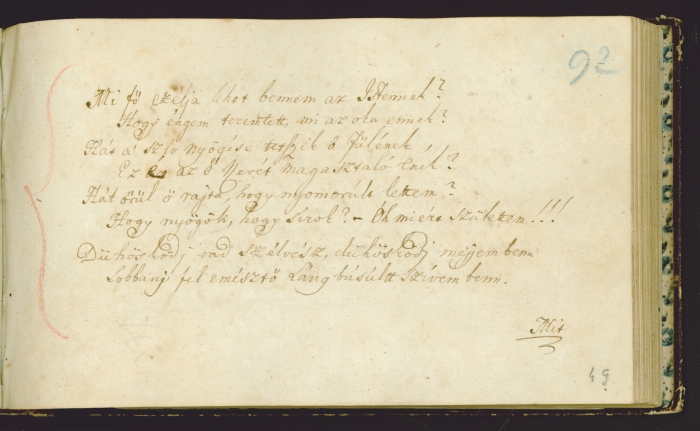 92
Mi fő czélja lehet bennem az Istennek?
Hogy éngem teremtett, mi az oka ennek?
Hát a' szív nyögése tetszik ő Fülének,
Ez az Ő Nevét magasztaló Ének?
Hát örül ő rajta, hogy nyomorúlt lettem?
Hogy nyögök, hogy sírok? – Óh miert születtem!!!
Dühösködj vad szélvész, dühösködj mejjembenn
Lobbanj fel emésztő Láng búsúltt Szívembenn.
Mit
49